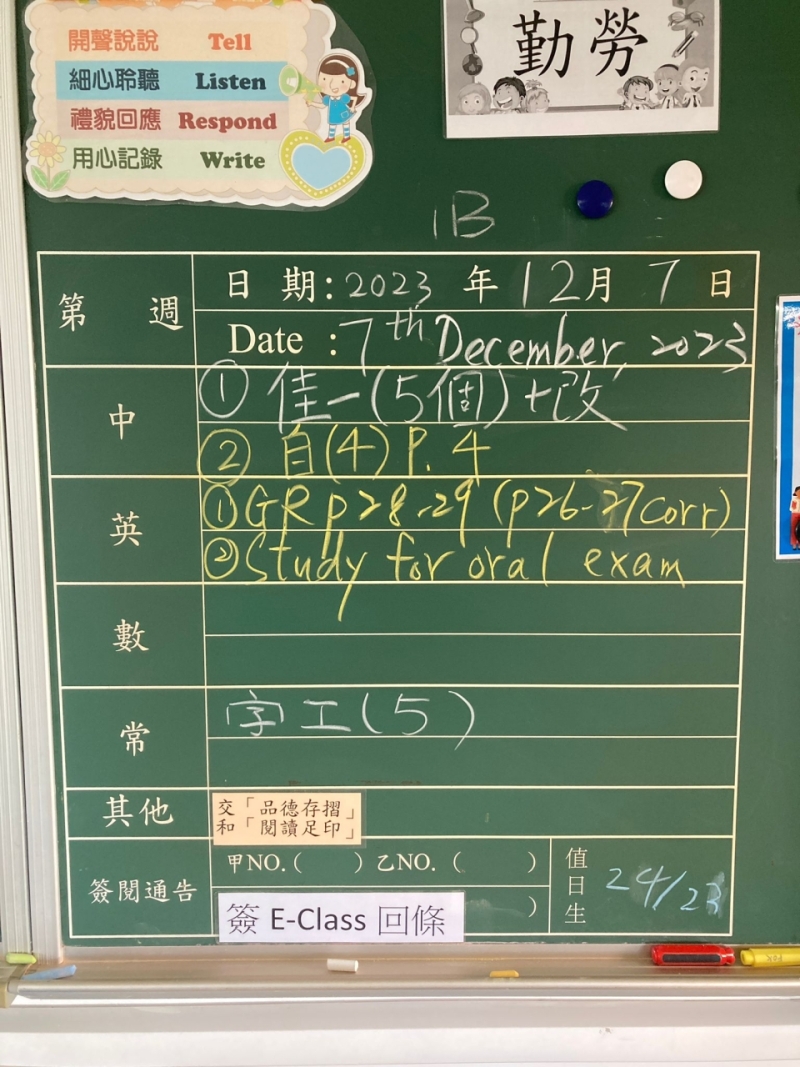 開聲說說 Tell
細心聆聽 Listen
禮貌回應 Respond
用心記錄 Write
勤勞
1B
第 週
日 期: 2023 年 12月 7 日
Date : 7th December, 2023
中
① 佳一(5個)+改
② 自(4) P. 4
英
① GR p28-29 (p26-27 corr)
② Study for oral exam
數
常
字工(5)
其他
交「品德存摺」
和「閱讀足印」
簽閱通告
甲NO.( ) 乙NO. ( )
)
簽 E-Class 回條
值日生
24/23